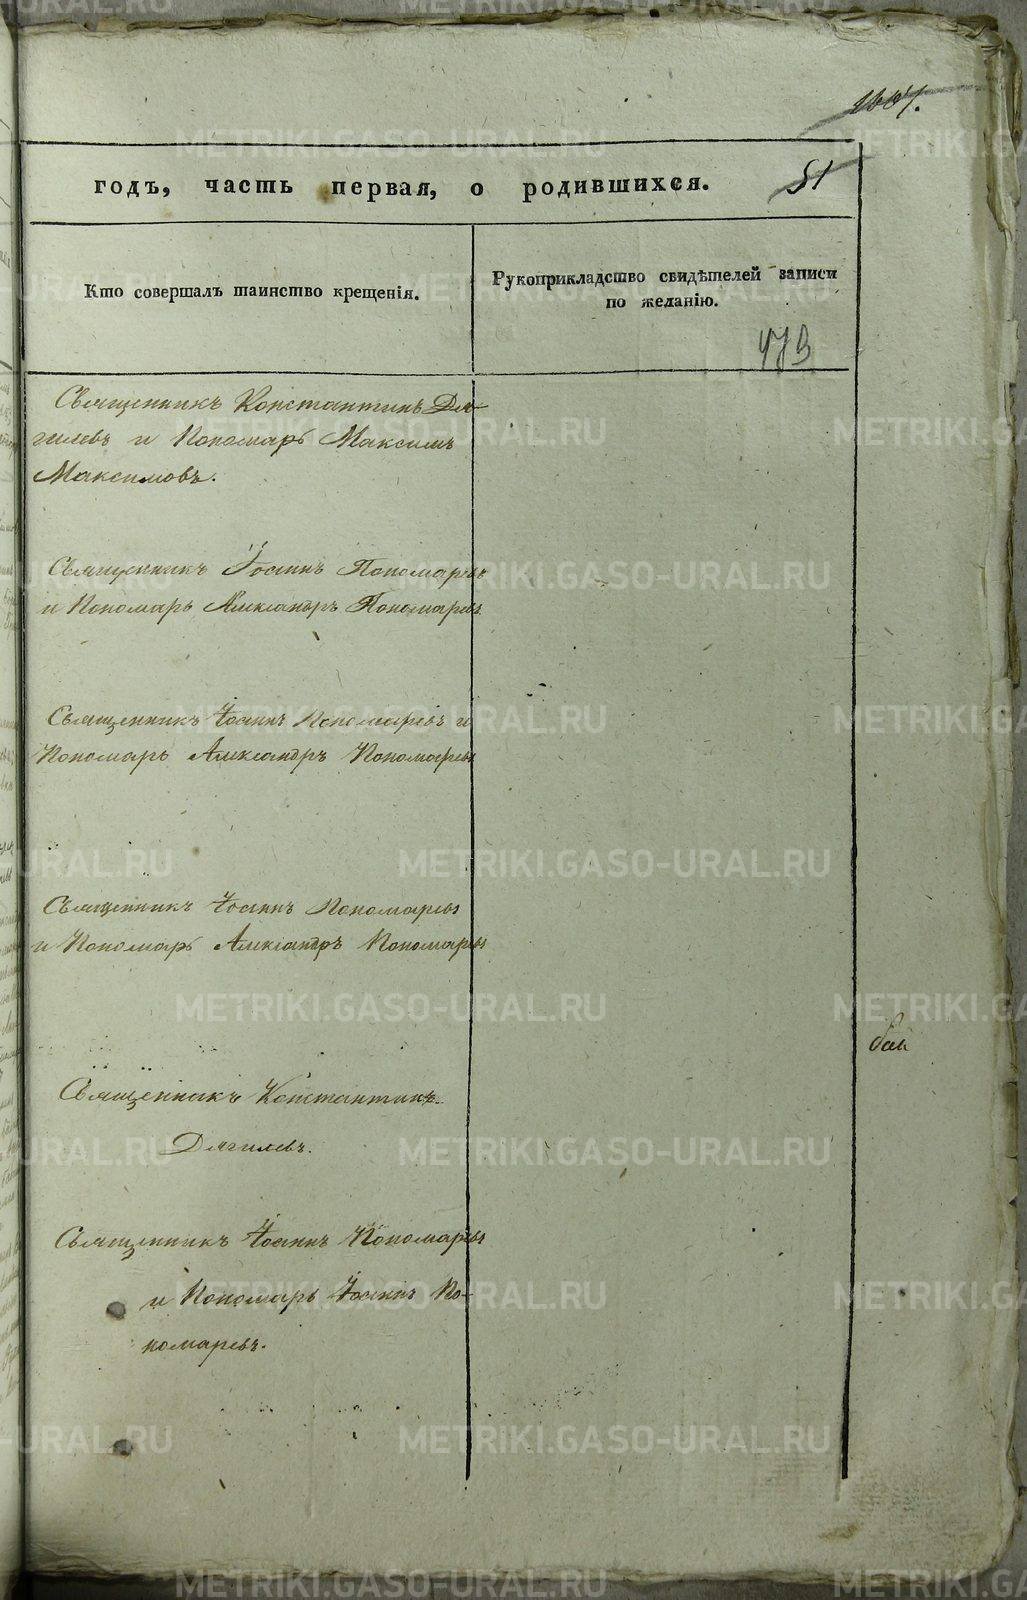 51
годъ, часть первая, о родившихся.
Кто совершалъ таинство крещенія.
Рукоприкладство свидѣтелей записи
по желанію.
473
Священникъ Константинъ Дя-
гилевъ и Пономарь Максимъ
Максимовъ.
Священникъ Іоаннъ Пономаревъ
и Пономарь Александръ Пономаревъ
Священникъ Іоаннъ Пономаревъ и
Пономарь Александръ Пономаревъ
Священникъ Іоаннъ Пономаревъ
и Пономарь Александръ Пономаревъ
Священникъ Константинъ
Дягилевъ.
Священникъ Іоаннъ Пономаревъ
и Пономарь Іоаннъ По-
номаревъ.
METRIKI.GASO-URAL.RU